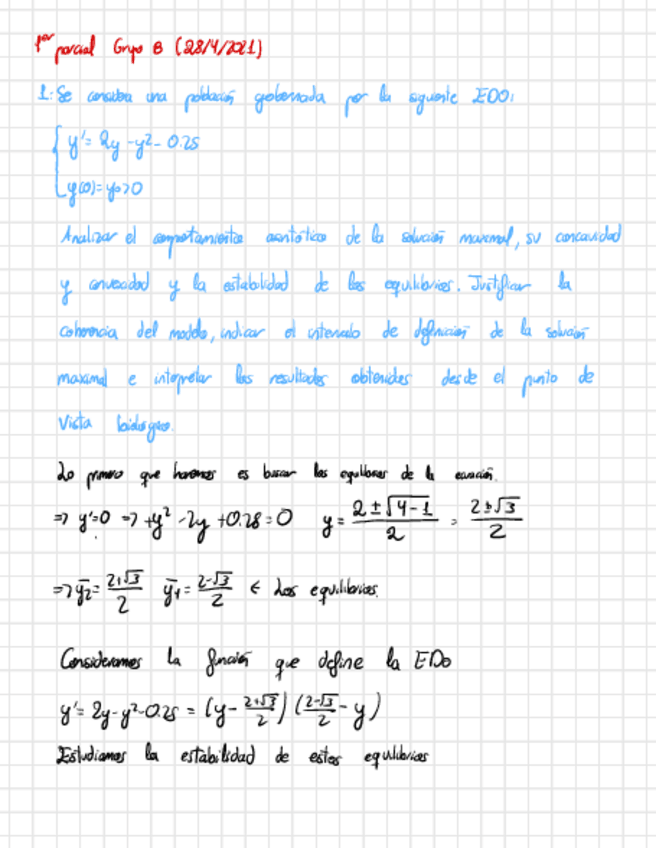 1er parcial Grupo B (28/4/2021)
1: Se considera una población gobernada por la siguiente EDO:
{ y' = 2y - y² - 0.25
y(0) = y₀ > 0
Analizar el comportamiento asintótico de la solución maximal, su concavidad
y convexidad y la estabilidad de los equilibrios. Justificar la
coherencia del modelo, indicar el intervalo de definición de la solución
maximal e interpretar los resultados obtenidos desde el punto de
vista biológico.
Lo primero que haremos es buscar los equilibrios de la ecuación.
=> y'=0 => +y² - 2y + 0.25 = 0 y = (2 ± √(4-1))/2 = (2 ± √3)/2
=> ȳ₂ = (2+√3)/2 ȳ₁ = (2-√3)/2 ← Los equilibrios.
Consideramos la función que define la EDO
y' = 2y - y² - 0.25 = (y - (2+√3)/2) ((2-√3)/2 - y)
Estudiamos la estabilidad de estos equilibrios